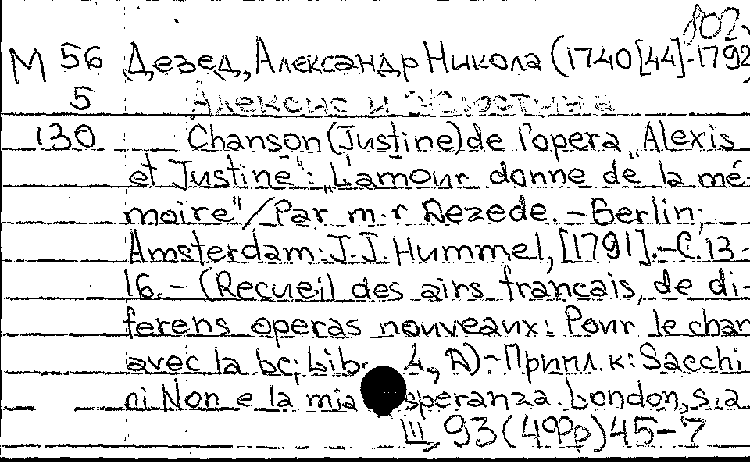 802.
М 56 Дезед, Александр Никола (1740[44]-1792
5 Алексис и Жюстина
130 Chanson (Justine) de l'opera „Alexis
et Justine": „L'amour donne de la mé-
moire"/Par m-r Dezede. – Berlin;
Amsterdam: J.J. Hummel, [1791]. – С. 13-
16. – (Recueil des airs francais, de di-
ferens operas nouveaux: Pour le chan
avec la bc; Lib. 4, A) – Припл. к: Sacchi
ni Non e la mia speranza. London, s.a
III 93(4Фр)45-7